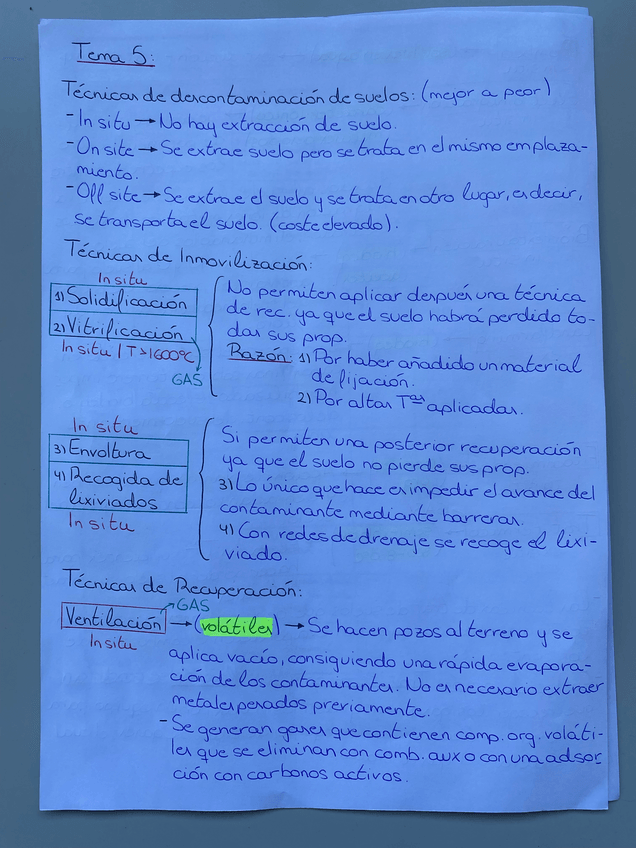 Tema 5:
Técnicas de descontaminación de suelos: (mejor a peor)
- In situ → No hay extracción de suelo.
- On site → Se extrae suelo pero se trata en el mismo emplaza-
miento.
- Off site → Se extrae el suelo y se trata en otro lugar, es decir,
se transporta el suelo. (coste elevado).
Técnicas de Inmovilización:
In situ
1) Solidificación
2) Vitrificación
In situ / T > 1600ºC
GAS
No permiten aplicar después una técnica
de rec. ya que el suelo habrá perdido to-
das sus prop.
Razón: 1) Por haber añadido un material
de fijación.
2) Por altas Tas aplicadas.
In situ
3) Envoltura
4) Recogida de
lixiviados
In situ
Si permiten una posterior recuperación
ya que el suelo no pierde sus prop.
3) Lo único que hace es impedir el avance del
contaminante mediante barreras.
4) Con redes de drenaje se recoge el lixi-
viado.
Técnicas de Recuperación:
GAS
Ventilación → (volátiles) → Se hacen pozos al terreno y se
In situ
aplica vacío, consiguiendo una rápida evapora-
ción de los contaminantes. No es necesario extraer
metales pesados previamente.
- Se generan gases que contienen comp. org. voláti-
les que se eliminan con comb. aux o con una adsor
ción con carbonos activos.